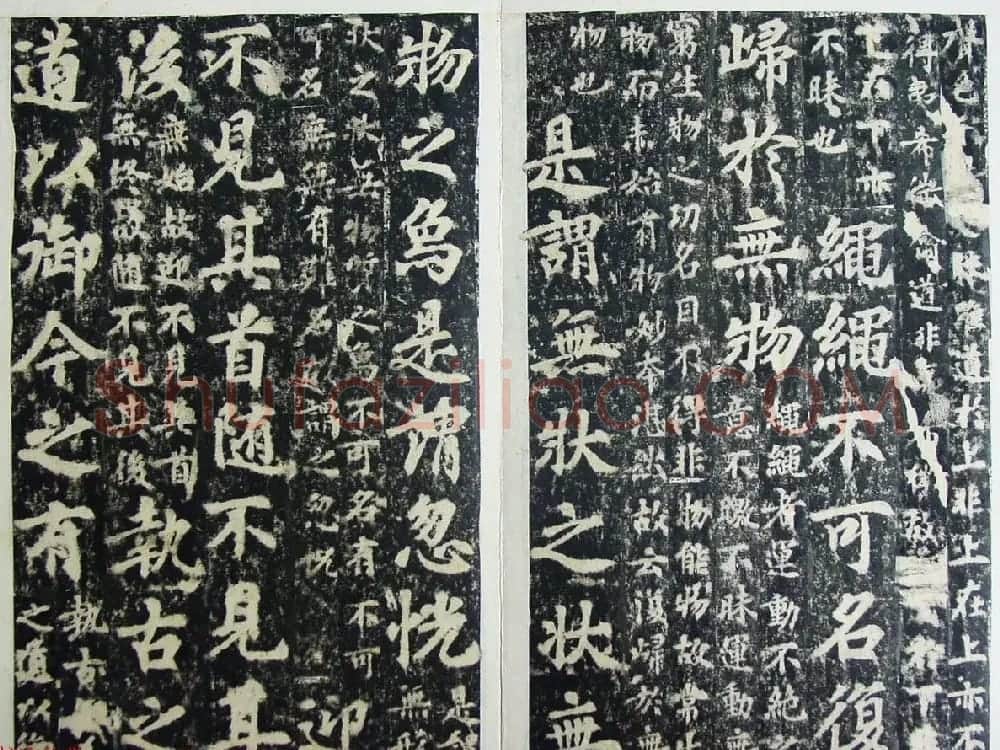 聲色
昧雖道於上非上在上亦不
得夷希微
道非
在下亦
不昧也
繩繩不可名復
歸於無物
繩繩者運動不絕
意不
不昧運動
窮生物之功名目不得非物能物故常
物而未始有物妙本
出故云復歸於無
物也
是謂無狀之狀無
物之象是謂忽恍
是謂
無
狀之狀無物
之象不可名有不可
名無非有非
謂之忽恍
迎
不見其首隨不見其
後
無始故迎不見其首
無終故隨不見其後
執古之
道以御今之有
執古
之道以御
Shufaziliao.COM